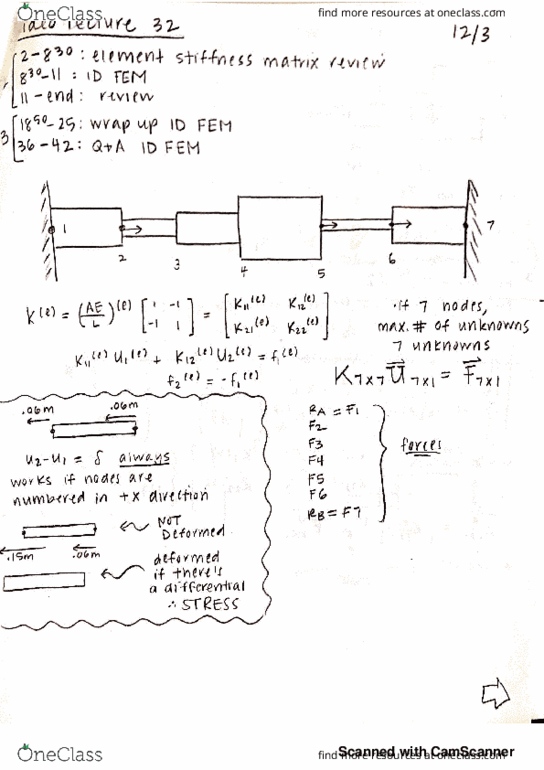 OneClass
find more resources at oneclass.com
lecture 32
12/3
2-8³⁰: element stiffness matrix review
8³⁰-11: 1D FEM
11-end: review
3
18⁵⁰-25: wrap up 1D FEM
36-42: Q+A 1D FEM
1
2
3
4
5
6
7
K⁽ᵉ⁾ = (AE/L)⁽ᵉ⁾ [1 -1 -1 1] = [K₁₁⁽ᵉ⁾ K₁₂⁽ᵉ⁾ K₂₁⁽ᵉ⁾ K₂₂⁽ᵉ⁾]
K₁₁⁽ᵉ⁾ U₁⁽ᵉ⁾ + K₁₂⁽ᵉ⁾ U₂⁽ᵉ⁾ = f₁⁽ᵉ⁾
f₂⁽ᵉ⁾ = -f₁⁽ᵉ⁾
·if 7 nodes,
max. # of unknowns
7 unknowns
K₇ₓ₇ U⃗₇ₓ₁ = F⃗₇ₓ₁
.06m .06m
u₂-u₁ = δ always
works if nodes are
numbered in +x direction
NOT
Deformed
.15m .06m
deformed
if there's
a differential
∴ STRESS
RA = F1
F2
F3
F4
F5
F6
RB = F7
forces
OneClass
find more resources at oneclass.com
Scanned with CamScanner